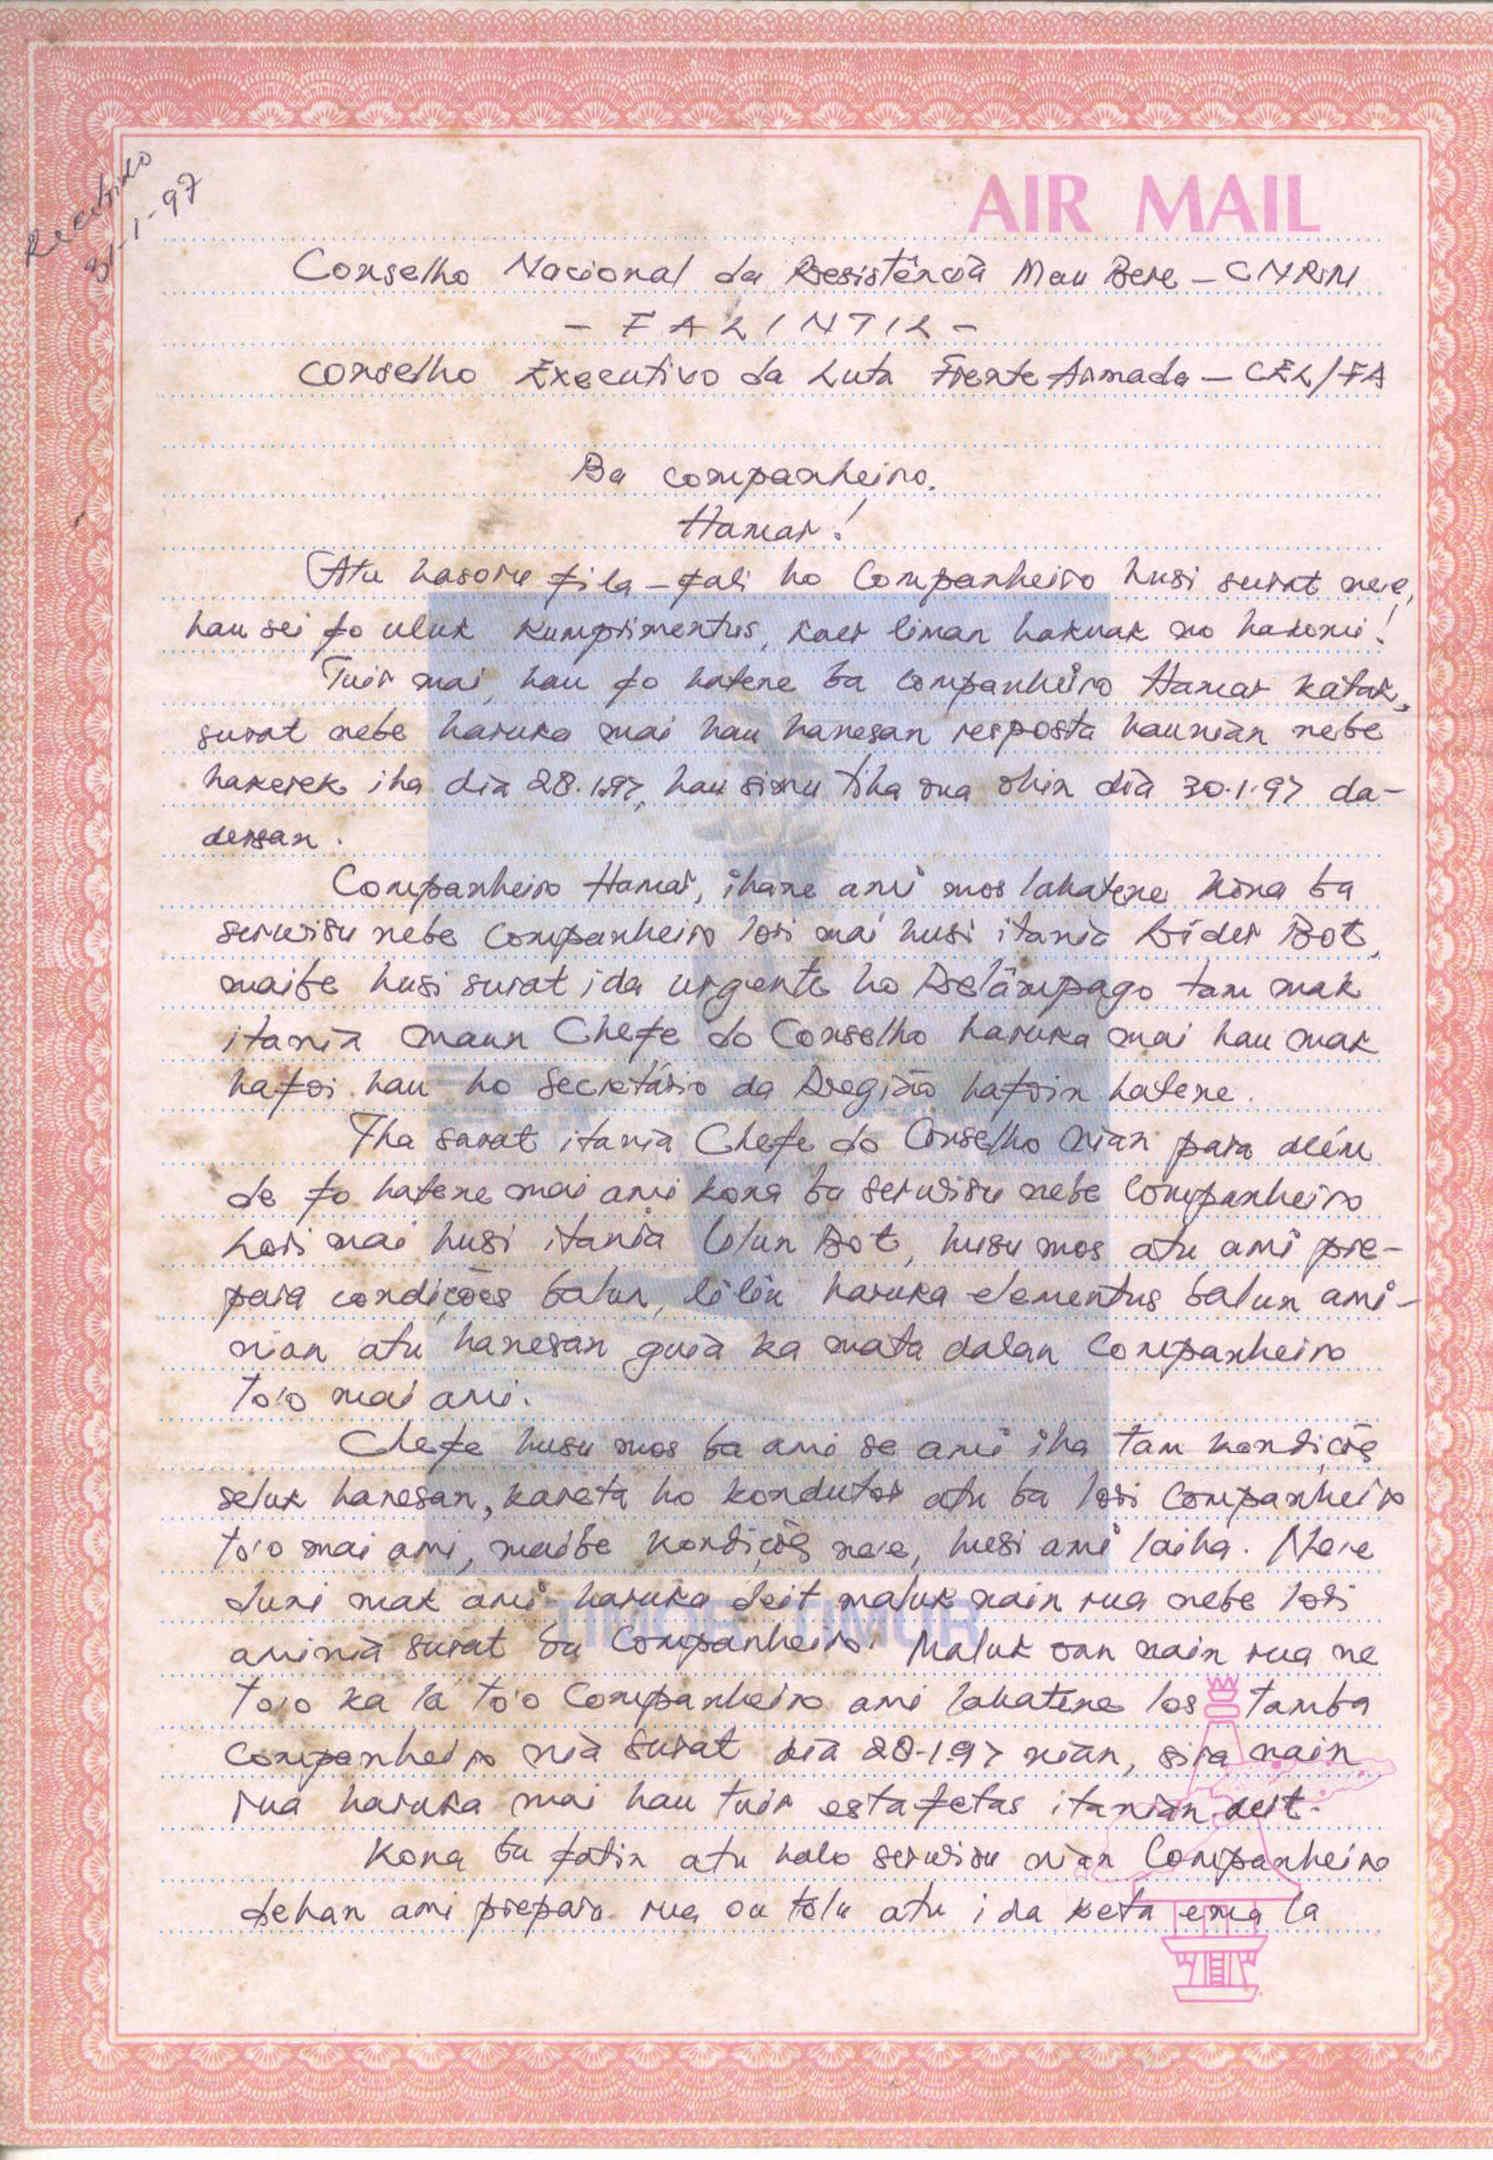 Recebido
31-1-97
AIR MAIL
Conselho Nacional da Resistência Mau Bere – CNRM
– FALINTIL –
Conselho Executivo da Luta Frente Armada – CEL/FA
Ba companheiro.
Hamar!
Atu hasoru fila-fali ho Companheiro husi surat ne'e,
hau sei fo uluk kumprimentus, kaer liman hakuak no hakomi!
Tuir mai, hau fo hatene ba Companheiro Hamar katak,
surat nebe haruka mai hau hanesan resposta haunian nebe
hakerek iha dia 28.1.97, hau simu tiha ona ohin dia 30.1.97 da-
dersan.
Companheiro Hamar, ihane ami mos lahatene kona ba
serwisu nebe Companheiro lori mai husi itania Líder Bot,
maibe husi surat ida urgente ho Relâmpago tan mak
itania maun Chefe do Conselho haruka mai hau mak
hafoi hau ho Secretário da Região hafoin hatene.
Iha surat itania Chefe do Conselho nian para além
de fo hatene mai ami kona ba serwisu nebe Companheiro
lori mai husi itania Ulun Bot, husu mos atu ami pre-
para condições balun, liliu haruka elementus balun ami-
nian atu hanesan guia ka mata dalan Companheiro
to'o mai ami.
Chefe husu mos ba ami se ami iha tan kondiçõs
seluk hanesan, kareta ho kondutor atu ba lori Companheiro
to'o mai ami, maibe kondiçõs ne'e, husi ami laiha. Ne'e
duni mak ami haruka deit maluk nain rua nebe lori
aminia surat ba Companheiro. Maluk oan nain rua ne
to'o ka la to'o Companheiro ami lahatene los tamba
Companheiro nia surat dia 28-1.97 nian, sira nain
rua haruka mai hau tuir estafetas itanian deit.
Kona ba fatin atu halo serwisu nian Companheiro
dehan ami prepara rua ou tolu atu ida keta ema la
TIMOR TIMUR